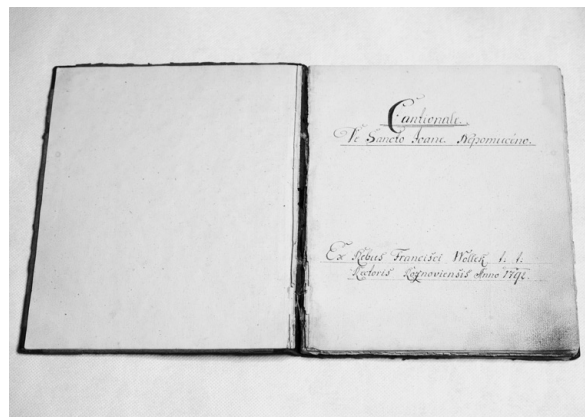 Cantionale
De Sancto Joane Nepomuceno.
Ex Rebus Francisci Wollek t. t.
Rectoris Rognoviensis Anno 1791.